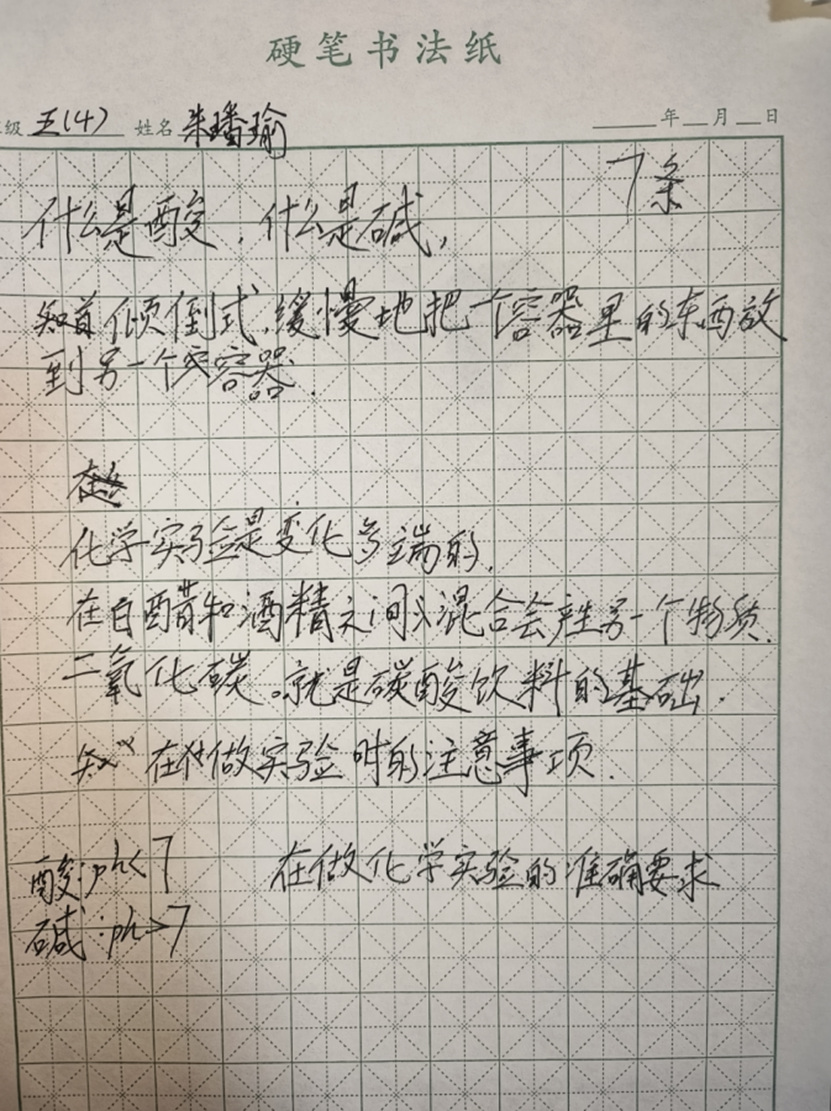 硬笔书法纸
级 五(4) 姓名 朱璠瑜 年 月 日
7条
什么是酸，什么是碱，
知道倾倒式，缓慢地把一个容器里的东西放
到另一个容器．
化学实验是变化多端的．
在白醋和酒精之间混合会产生另一个物质．
二氧化碳。就是碳酸饮料的基础．
知 在做实验时的注意事项．
酸:ph<7 在做化学实验的准确要求
碱:ph>7